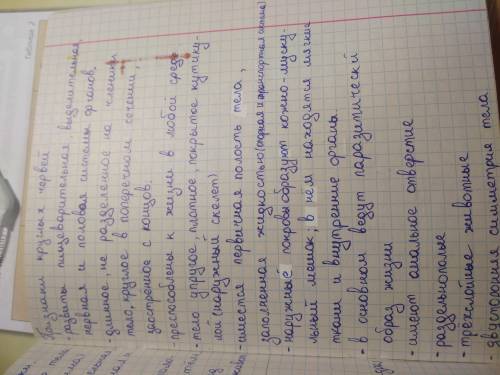 Признаки круглых червей
развиты пищеварительная, выделительная,
нервная и половая системы органов.
- длинное, не разделенное на членики
тело, круглое в поперечном сечении,
заостренное с концов.
- преспособлены к жизни в любой среде
- тело упругое, плотное, покрытое кутику-
лой (наружный скелет)
- имеется первичная полость тела,
заполненная жидкостью (опорная и транспортная система)
- наружные покровы образуют кожно-муску-
льный мешок; в нем находятся мягкие
ткани и внутренние органы
- в основном ведут паразитический
образ жизни
- имеют анальное отверстие
- раздельнополые
- трехслойные животные
- двусторонняя симметрия тела